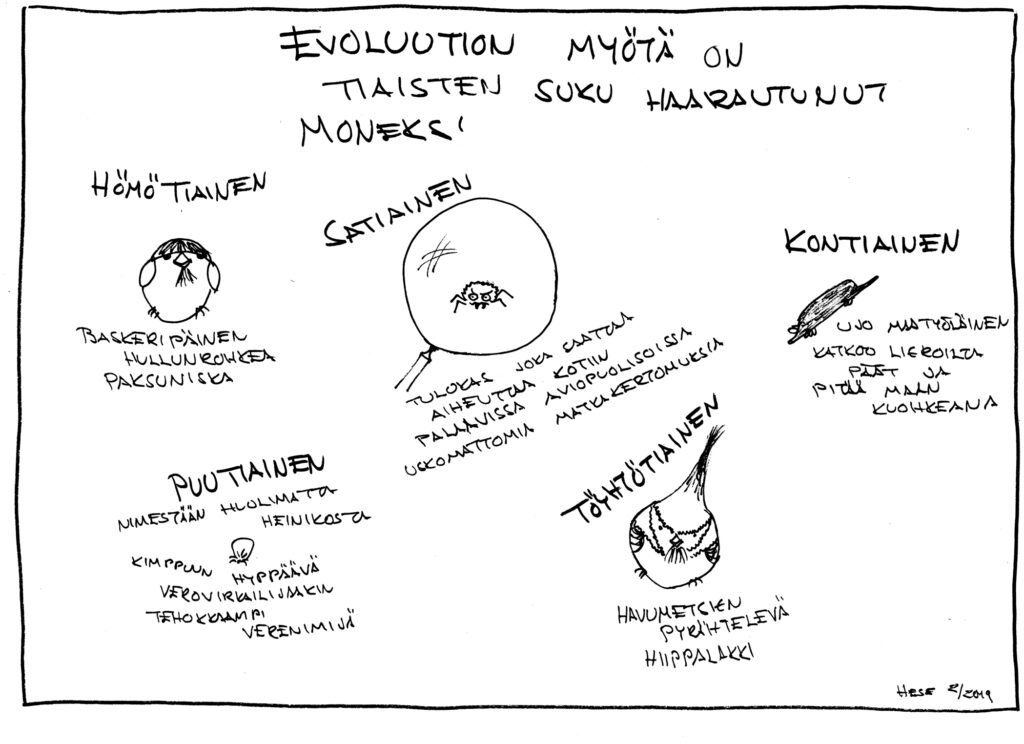 EVOLUUTION MYÖTÄ ON
TIAISTEN SUKU HAARAUTUNUT
MONEKSI
HÖMÖTIAINEN
BASKERIPÄINEN
HULLUNROHKEA
PAKSUNISKA
SATIAINEN
TULOKAS JOKA SAATTAA
AIHEUTTAA KOTIIN
PALAAVISSA AVIOPUOLISOISSA
USKOMATTOMIA MATKAKERTOMUKSIA
KONTIAINEN
UJO MAATYÖLÄINEN
KATKOO LIEROILTA
PÄÄT JA
PITÄÄ MAAN
KUOHKEANA
PUUTIAINEN
NIMESTÄÄN HUOLIMATTA
HEINIKOSTA
KIMPPUUN HYPPÄÄVÄ
VEROVIRKAILIJAAKIN
TEHOKKAAMPI
VERENIMIJÄ
TÖYHTÖTIAINEN
HAVUMETSIEN
PYRÄHTELEVÄ
HIIPPALAKKI
HESE 2/2019